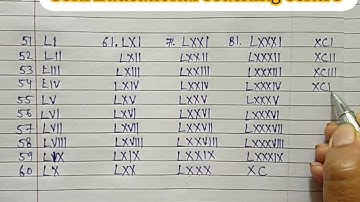 51 LI 61. LXI 71. LXXI 81. LXXXI XCI
52 LII LXII LXXII LXXXII XCII
53 LIII LXIII LXXIII LXXXIII XCIII
54 LIV LXIV LXXIV LXXXIV XCI
55 LV LXV LXXV LXXXV
56 LVI LXVI LXXVI LXXXVI
57 LVII LXVII LXXVII LXXXVII
58 LVIII LXVIII LXXVIII LXXXVIII
59 LIX LXIX LXXIX LXXXIX
60 LX LXX LXXX XC